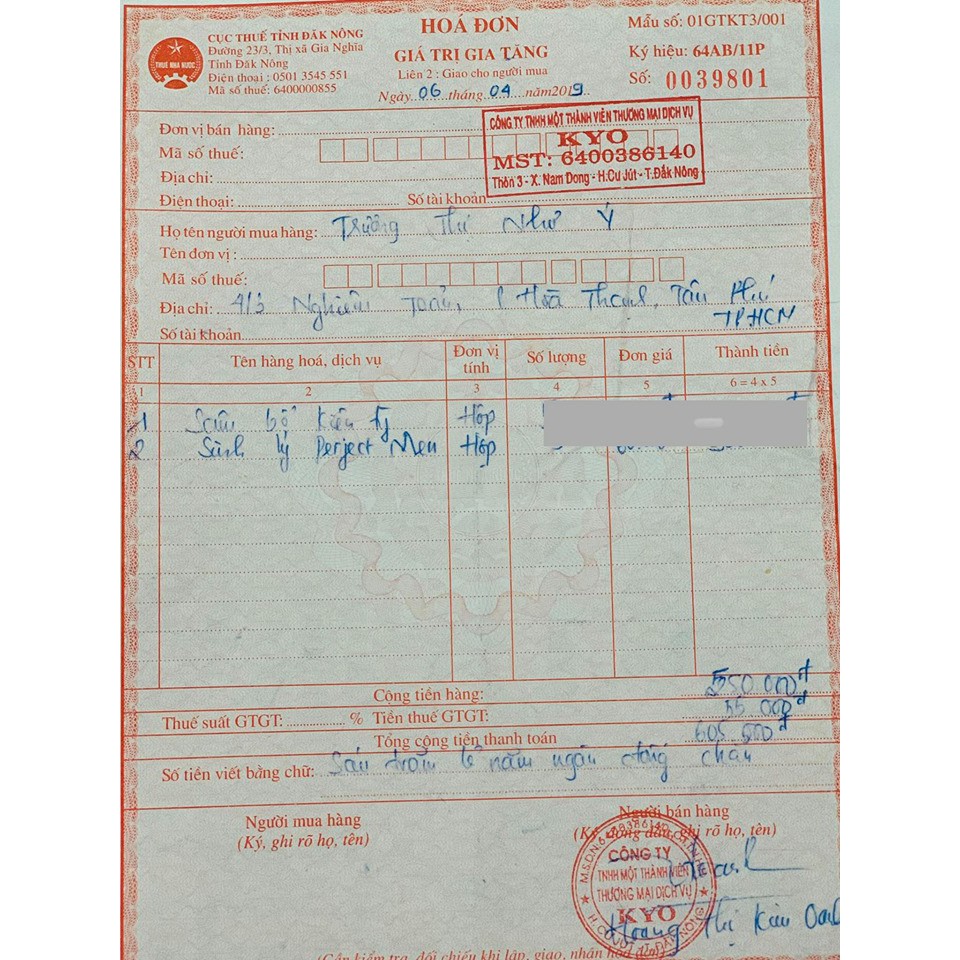 CỤC THUẾ TỈNH ĐĂK NÔNG
Đường 23/3, Thị xã Gia Nghĩa
Tỉnh Đăk Nông
Điện thoại : 0501 3545 551
Mã số thuế: 6400000855
THUẾ NHÀ NƯỚC
HOÁ ĐƠN
GIÁ TRỊ GIA TĂNG
Liên 2 : Giao cho người mua
Ngày 06 tháng 04 năm 2019
Mẫu số: 01GTKT3/001
Ký hiệu: 64AB/11P
Số: 0039801
Đơn vị bán hàng:
Mã số thuế:
Địa chỉ:
Điện thoại: Số tài khoản
CÔNG TY TNHH MỘT THÀNH VIÊN THƯƠNG MẠI DỊCH VỤ
KYO
MST: 6400386140
Thôn 3 - X. Nam Dong - H.Cư Jút - T.Đắk Nông
Họ tên người mua hàng: Trương Thị Như Ý
Tên đơn vị :
Mã số thuế:
Địa chỉ: 4/3 Nghiêm Toản, P Hoà Thạnh, Tân Phú
TPHCM
Số tài khoản
STT Tên hàng hoá, dịch vụ Đơn vị tính Số lượng Đơn giá Thành tiền
1 2 3 4 5 6 = 4 x 5
1 Sâm bổ Kiên Tỳ Hộp
2 Sinh lý Perject Men Hộp
Cộng tiền hàng: 550 000đ
Thuế suất GTGT: % Tiền thuế GTGT: 55 000đ
Tổng cộng tiền thanh toán 605 000đ
Số tiền viết bằng chữ: Sáu trăm lẻ năm ngàn đồng chẵn
Người mua hàng
(Ký, ghi rõ họ, tên)
Người bán hàng
(Ký, đóng dấu, ghi rõ họ, tên)
M.S.D.N:6400386140
CÔNG TY
TNHH MỘT THÀNH VIÊN
THƯƠNG MẠI DỊCH VỤ
KYO
H.CƯ JÚT - T.ĐẮK NÔNG
Hoàng Thị Kim Oanh
(Cần kiểm tra, đối chiếu khi lập, giao, nhận hoá đơn)